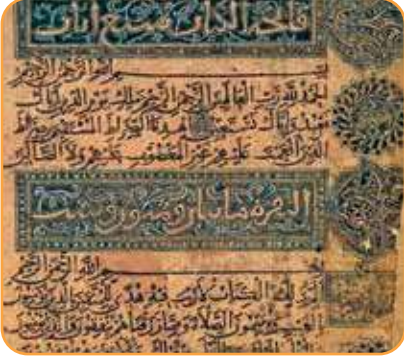 فاتحة الكتاب سبع آيات
بسم الله الرحمن الرحيم
الحمد لله رب العالمين الرحمن الرحيم ملك يوم الدين إياك
نعبد وإياك نستعين اهدنا الصراط المستقيم صراط
الذين أنعمت عليهم غير المغضوب عليهم ولا الضالين
البقرة مايتان وثمنون وست
بسم الله الرحمن الرحيم
الم ذلك الكتاب لا ريب فيه هدى للمتقين الذين يؤمنون
بالغيب ويقيمون الصلاة ومما رزقناهم ينفقون والذين يؤمنون